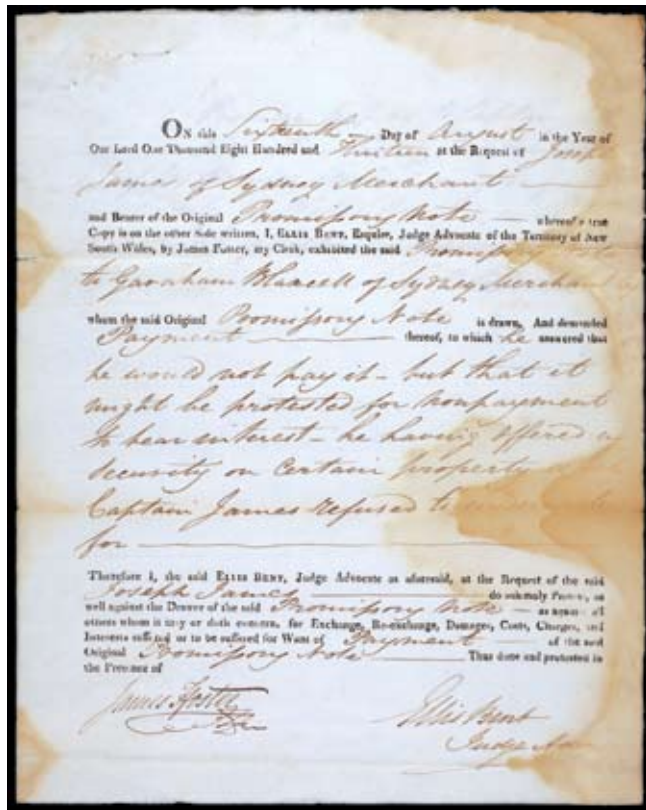 ON this Sixteenth Day of August in the Year of
Our Lord One Thousand Eight Hundred and Thirteen at the Request of Joseph
James of Sydney Merchant
and Bearer of the Original Promissory Note — whereof a true
Copy is on the other Side written, I, ELLIS BENT, Esquire, Judge Advocate of the Territory of New
South Wales, by James Foster, my Clerk, exhibited the said Promissory
to Garnham Blaxcell of Sydney Merchant
whom the said Original Promissory Note is drawn, And demanded
Payment — thereof, to which he answered that
he would not pay it – but that it
might be protested for nonpayment
to bear interest – he having offered
security on certain property
Captain James refused to
for —
Therefore I, the said ELLIS BENT, Judge Advocate as aforesaid, at the Request of the said
Joseph James — do solemnly Protest, as
well against the Drawer of the said Promissory Note — as against all
others whom it may or doth concern, for Exchange, Re-exchange, Damages, Costs, Charges, and
Interests suffered or to be suffered for Want of Payment of the said
Original Promissory Note — Thus done and protested in
the Presence of
James Foster
Ellis Bent
Judge